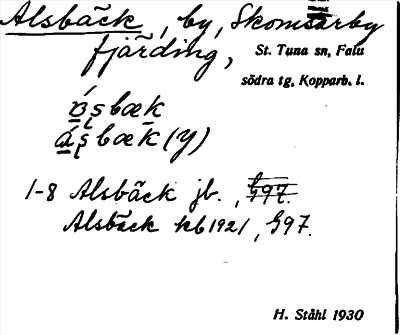 Alsbäck, by, Skomsarby
fjärding, St. Tuna sn, Falu
södra tg, Kopparb. l.
ɒ́ʂbæk
ɑ́ʂbæk (y)
1-8 Alsbäck jb.,
Alsbäck kb 1921, §97.
H. Ståhl 1930